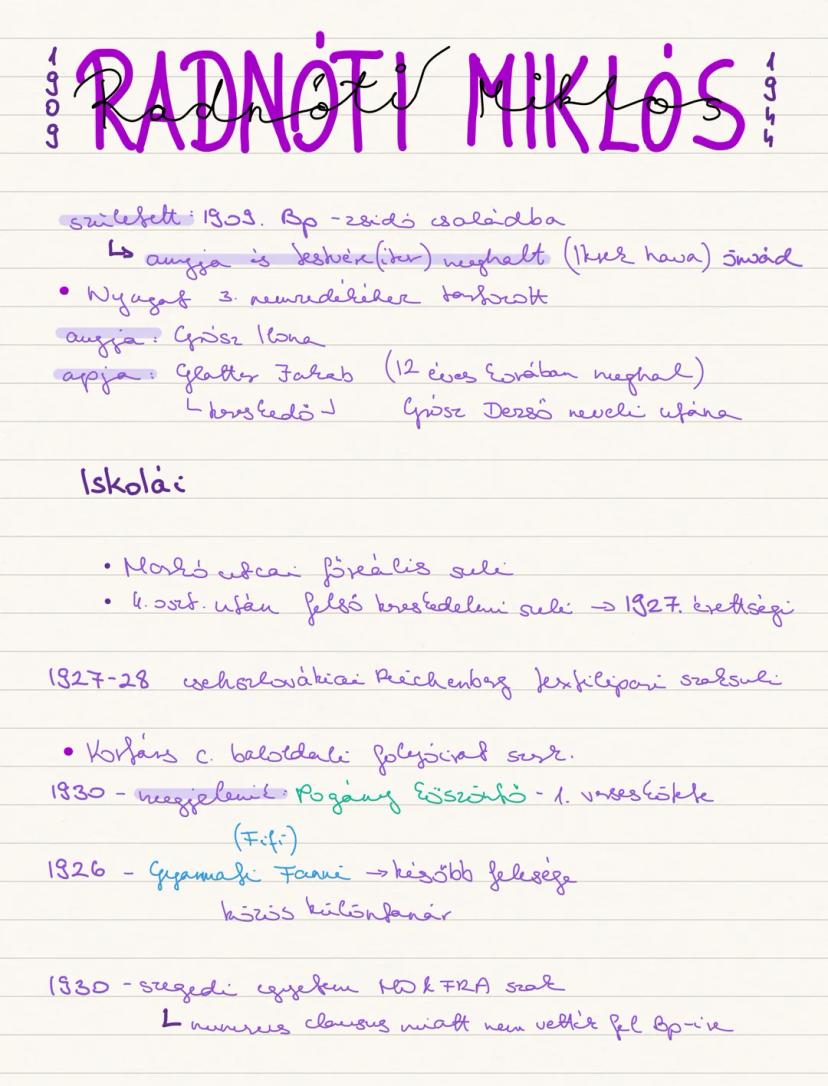 1909 RADNÓTI MIKLÓS 1944
Radnóti Miklós
született: 1909. Bp - zsidó családba
↳ anyja és testvére (iker) meghalt (Ikrek hava) önvád
• Nyugat 3. nemzedékéhez tartozott
anyja: Grósz Ilona
apja: Glatter Jakab (12 éves korában meghal)
└ kereskedő ┘ Grósz Dezső neveli utána
Iskolái
• Markó utcai főreális suli
• 4. oszt. után felső kereskedelmi suli → 1927. érettségi
1927-28 csehszlovákiai Reichenberg textilipari szaksuli
• Kortárs c. baloldali folyóirat szerk.
1930 - megjelenik: Pogány köszöntő - 1. verseskötete
(Fifi)
1926 - Gyarmati Fanni → később felesége
közös különtanár
1930 - szegedi egyetem MO & FRA szak
└ numerus clausus miatt nem vették fel Bp-re